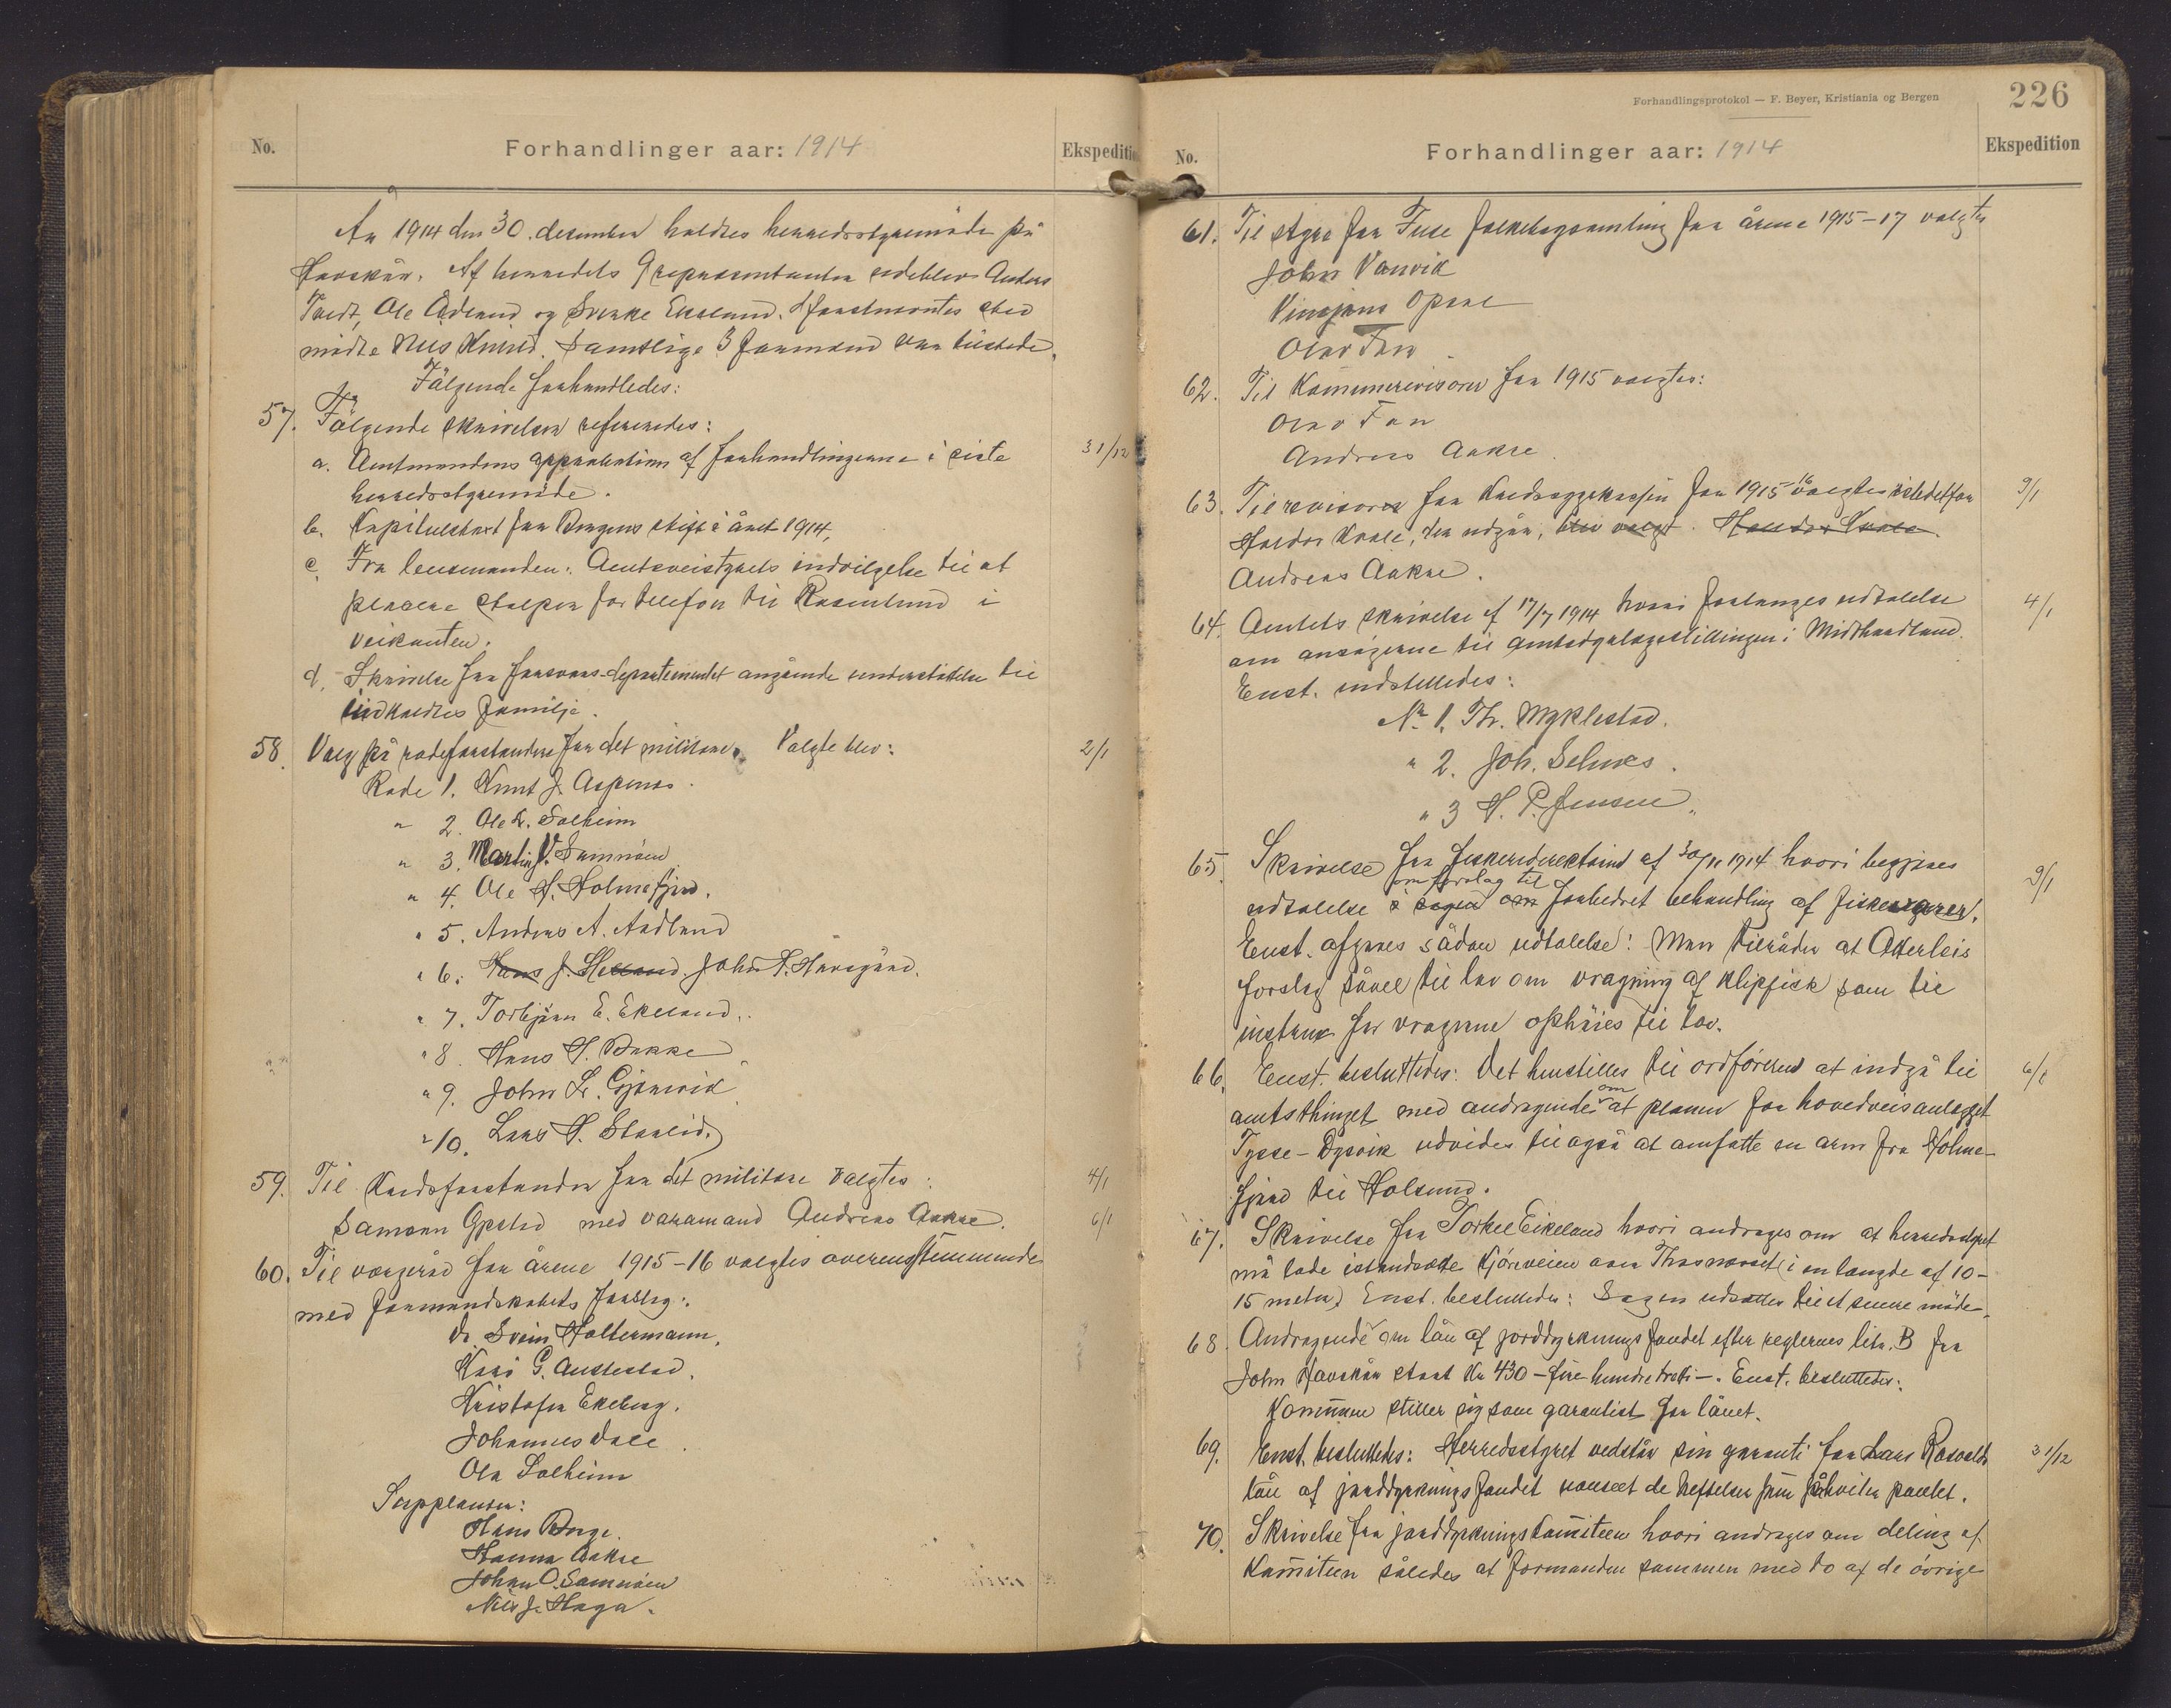 No.
Forhandlinger aar: 1914
Ekspeditio
År 1914 den 30. desember holdtes herredsstyremöde på
Havskår. Af herredets 9 repræsentanter udeblev Anders
Tvedt, Ole Ådland og Brynke Eikeland. I förstnævntes sted
mödte Nils Kvind. Samtlige 3 formænd var tilstede.
Fölgende forhandledes:
57. Fölgende skrivelser refereredes:
a. Amtmandens approbation af forhandlingerne i siste
herredsstyremöde.
31/12
b. Kapitelstakst for Bergens stift i året 1914,
c. Fra lensmanden: Amtsveistyrets indvilgelse til at
placere stolper for telefon til Rosenlund i
veikanten.
d. Skrivelse fra forsvars-departementet angående understöttelse til
indkaldtes familje.
58. Valg på rodeforstandere for det militære. Valgte blev:
2/1
Rode 1. Knut J. Aspenes.
" 2. Ole L. Solheim
" 3. Martin V. Samnöen
" 4. Ole H. Holmefjord.
" 5. Anders A. Aadland
" 6. Hans J. Helland. John P. Håvegård.
" 7. Torbjörn E. Ekeland.
" 8. Hans H. Bakke
" 9. John L. Gjönvik
" 10. Lars H. Skaleid.
59. Til Kredsforstander for det militære valgtes:
4/1
Samson Gjerstad med varamand Andreas Aakre.
6/1
60. Til vergeråd for årene 1915-16 valgtes overensstemmende
med formandskabets forslag:
dr Svein Holtermann,
Kari G. Austestad.
Kristofer Ekeberg.
Johannes Dale.
Ola Solheim
Suppleanter:
Hans Berge.
Hanna Aakre
Johan O. Samnöen
Nils J. Haga.
Forhandlingsprotokol — F. Beyer, Kristiania og Bergen
226
No.
Forhandlinger aar: 1914
Ekspedition
61. Til styre for Fuse folkebogsamling for årene 1915-17 valgtes
John Vanvik
Vinsjans Opsal
Olav Far
62. Til Kommunerevisorer for 1915 valgtes:
Olav Far
Andreas Aakre.
63. Til revisorer for Kredssygekassen for 1915 valgtes istedetfor
9/1
Haldor Kvale, der udgår, blev valgt. Haldor Kvale.
Andreas Aakre.
64. Amtets skrivelse af 17/7 1914 hvori forlanges udtalelse
4/1
om ansögerne til amtsdyrlægestillingen i Midthordland.
Enst. indstilledes:
No 1. Th. Myklestad.
" 2. Joh. Selnes.
" 3 H. P. Jensen.
65. Skrivelse fra fiskeridirektören af 30/11 1914 hvori begjæres
9/1
om forslag til
udtalelse i sagen om forbedret behandling af fiskevarer.
Enst. afgaves sådan udtalelse: Man tilråder at Otterleis
forslag såvel til lov om vragning af klipfisk som til
instrux for vragerne ophöies til lov.
66. Enst. besluttedes: Det henstilles til ordföreren at indgå til
6/1
amtsthinget med andragende om at planen for hovedveisanlægget
Tysse - Dysvik udvides til også at omfatte en arm fra Holme-
fjord til Holsund.
67. Skrivelse fra Torkel Eikeland hvori andrages om at herredsstyret
må lade istandsætte Kjöreveien over Thornæsset (i en længde af 10-
15 meter) Enst. besluttedes: Sagen udsættes til et senere möde.
68. Andragende om lån af jorddyrkningsfondet efter reglernes litr. B fra
John Havskår stort Kr 430 - fire hundre tretti -. Enst. besluttedes:
Kommunen stiller sig som garantist for lånet.
69. Enst. besluttedes: Herredsstyret vedstår sin garanti for Lars Rosvolds
31/12
lån af jorddyrkningsfondet uanseet de heftelser som påhviler pantet.
70. Skrivelse fra jorddyrkningskomiteen hvori andrages om deling af
Komiteen således at formanden sammen med to af de övrige